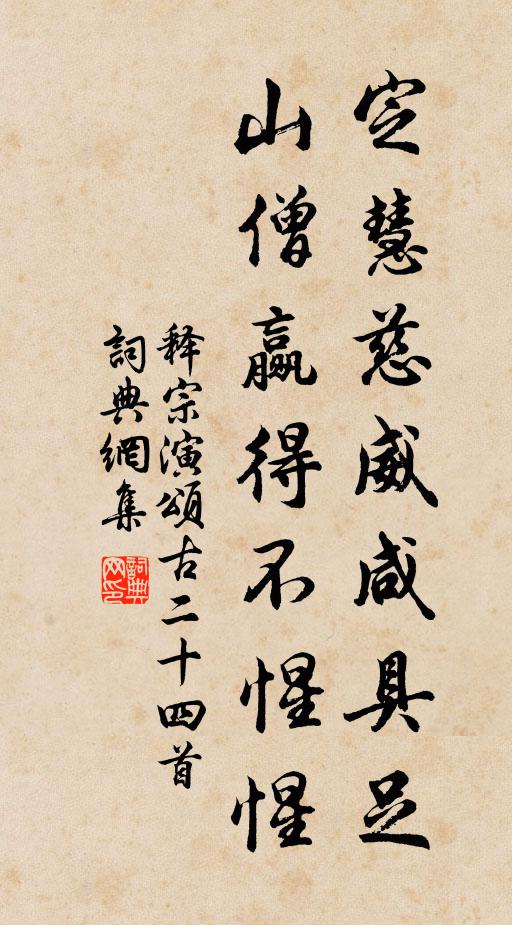 定慧慈威咸具足
山僧赢得不惺惺
释宗演頌古二十四首
詞典網集
詞典网印